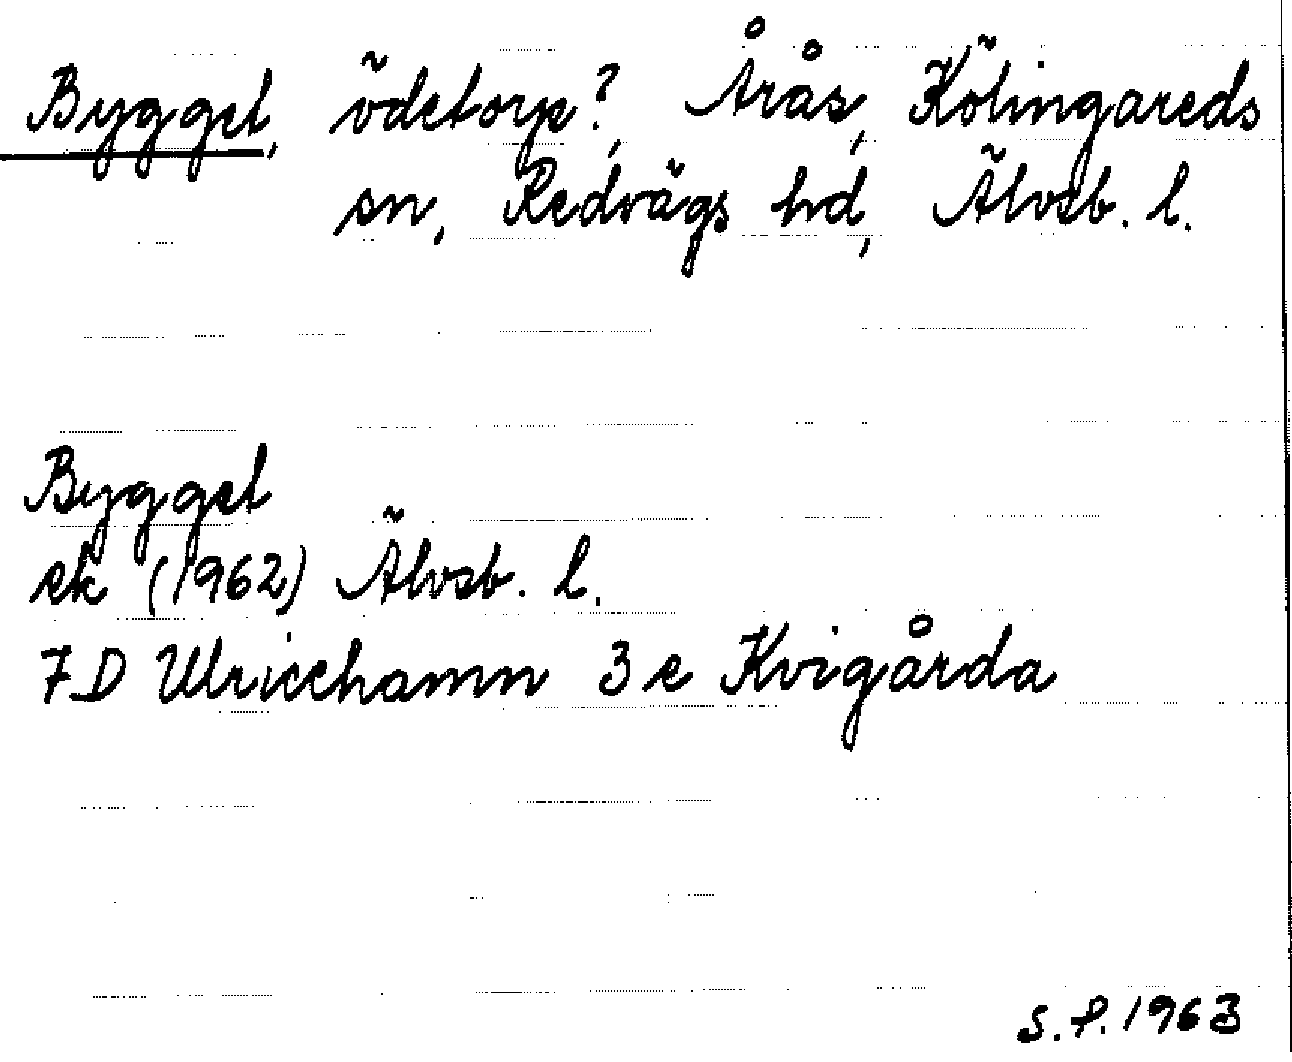 Bygget, ödetorp?, Årås, Kölingareds
sn, Redvägs hd, Älvsb. l.
Bygget
ek (1962) Älvsb. l.
7D Ulricehamn 3e Kvigårda
S.P. 1963